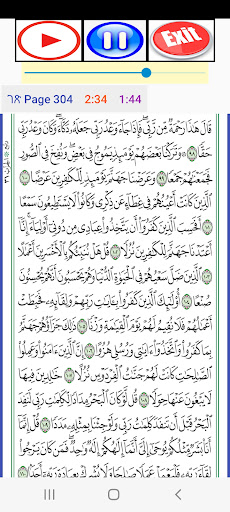 Exit
Page 304 2:34 1:44
قَالَ هَٰذَا رَحْمَةٌ مِّن رَّبِّى ۖ فَإِذَا جَآءَ وَعْدُ رَبِّى جَعَلَهُۥ دَكَّآءَ ۖ وَكَانَ وَعْدُ رَبِّى
حَقًّا ٩٨ ۞ وَتَرَكْنَا بَعْضَهُمْ يَوْمَئِذٍ يَمُوجُ فِى بَعْضٍ ۖ وَنُفِخَ فِى ٱلصُّورِ
فَجَمَعْنَٰهُمْ جَمْعًا ٩٩ وَعَرَضْنَا جَهَنَّمَ يَوْمَئِذٍ لِّلْكَٰفِرِينَ عَرْضًا ١٠٠
ٱلَّذِينَ كَانَتْ أَعْيُنُهُمْ فِى غِطَآءٍ عَن ذِكْرِى وَكَانُوا۟ لَا يَسْتَطِيعُونَ سَمْعًا
١٠١ أَفَحَسِبَ ٱلَّذِينَ كَفَرُوٓا۟ أَن يَتَّخِذُوا۟ عِبَادِى مِن دُونِىٓ أَوْلِيَآءَ ۚ إِنَّآ
أَعْتَدْنَا جَهَنَّمَ لِلْكَٰفِرِينَ نُزُلًا ١٠٢ قُلْ هَلْ نُنَبِّئُكُم بِٱلْأَخْسَرِينَ أَعْمَٰلًا
١٠٣ ٱلَّذِينَ ضَلَّ سَعْيُهُمْ فِى ٱلْحَيَوٰةِ ٱلدُّنْيَا وَهُمْ يَحْسَبُونَ أَنَّهُمْ يُحْسِنُونَ
صُنْعًا ١٠٤ أُو۟لَٰٓئِكَ ٱلَّذِينَ كَفَرُوا۟ بِـَٔايَٰتِ رَبِّهِمْ وَلِقَآئِهِۦ فَحَبِطَتْ
أَعْمَٰلُهُمْ فَلَا نُقِيمُ لَهُمْ يَوْمَ ٱلْقِيَٰمَةِ وَزْنًا ١٠٥ ذَٰلِكَ جَزَآؤُهُمْ جَهَنَّمُ
بِمَا كَفَرُوا۟ وَٱتَّخَذُوٓا۟ ءَايَٰتِى وَرُسُلِى هُزُوًا ١٠٦ إِنَّ ٱلَّذِينَ ءَامَنُوا۟ وَعَمِلُوا۟
ٱلصَّٰلِحَٰتِ كَانَتْ لَهُمْ جَنَّٰتُ ٱلْفِرْدَوْسِ نُزُلًا ١٠٧ خَٰلِدِينَ فِيهَا
لَا يَبْغُونَ عَنْهَا حِوَلًا ١٠٨ قُل لَّوْ كَانَ ٱلْبَحْرُ مِدَادًا لِّكَلِمَٰتِ رَبِّى لَنَفِدَ
ٱلْبَحْرُ قَبْلَ أَن تَنفَدَ كَلِمَٰتُ رَبِّى وَلَوْ جِئْنَا بِمِثْلِهِۦ مَدَدًا ١٠٩ قُلْ إِنَّمَآ
أَنَا۠ بَشَرٌ مِّثْلُكُمْ يُوحَىٰٓ إِلَىَّ أَنَّمَآ إِلَٰهُكُمْ إِلَٰهٌ وَٰحِدٌ ۖ فَمَن كَانَ يَرْجُوا۟
لِقَآءَ رَبِّهِۦ فَلْيَعْمَلْ عَمَلًا صَٰلِحًا وَلَا يُشْرِكْ بِعِبَادَةِ رَبِّهِۦٓ أَحَدًۢا ١١٠